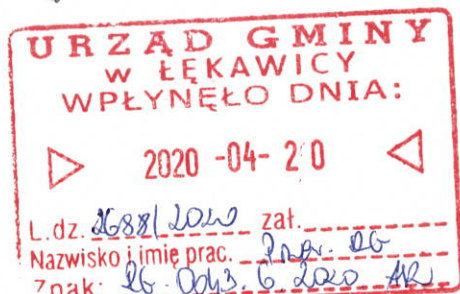 URZĄD GMINY
w ŁĘKAWICY
WPŁYNĘŁO DNIA:
2020 -04- 20
L.dz. 2688/2020 zał.
Nazwisko i imię prac. RG
Znak: RG. 0043. 6. 2020